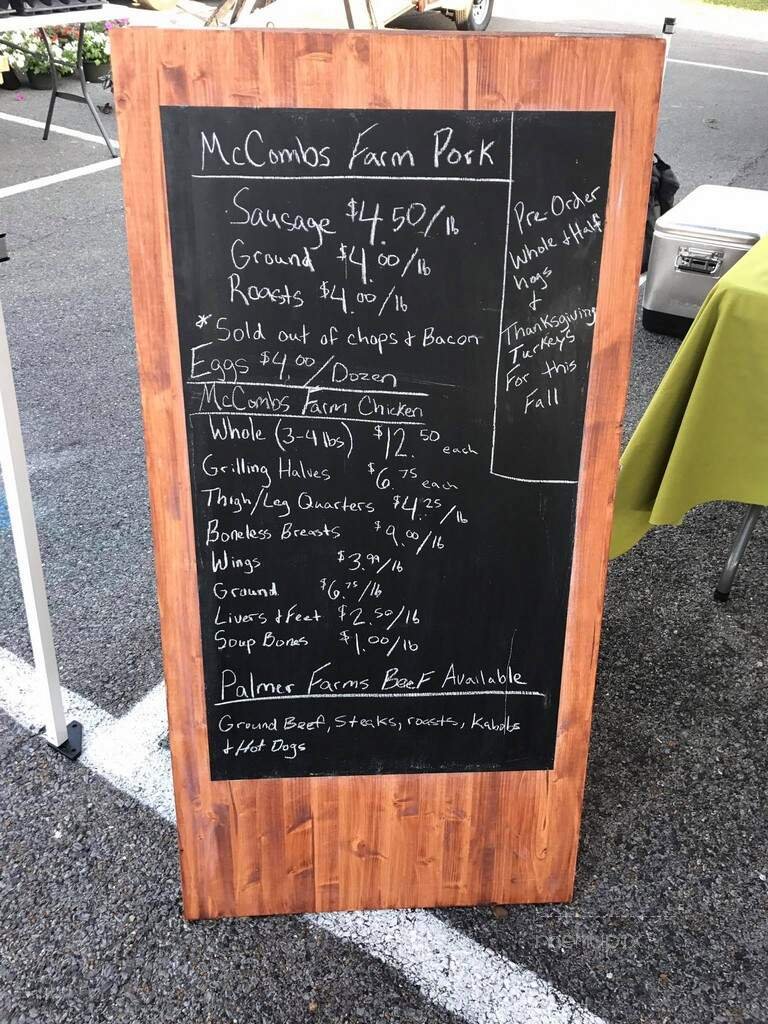 McCombs Farm Pork
Sausage $4.50/lb
Ground $4.00/lb
Roasts $4.00/lb
* Sold out of chops & Bacon
Eggs $4.00/Dozen
McCombs Farm Chicken
Whole (3-4 lbs) $12.50 each
Grilling Halves $6.75 each
Thigh/Leg Quarters $4.25/lb
Boneless Breasts $9.00/lb
Wings $3.99/lb
Ground $6.75/lb
Livers & Feet $2.50/lb
Soup Bones $1.00/lb
Palmer Farms Beef Available
Ground Beef, Steaks, roasts, Kabobs
& Hot Dogs
Pre-Order
Whole & Half
hogs
&
Thanksgiving
Turkeys
For this
Fall